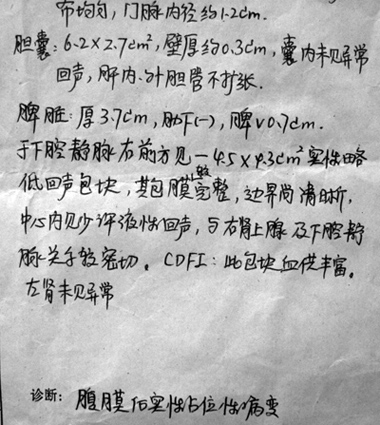 布均匀，门脉内径约1.2cm.
胆囊：6.2×2.7cm²，壁厚约0.3cm，囊内未见异常
回声，肝内、外胆管不扩张.
脾脏：厚3.7cm，肋下(-)，脾v0.7cm.
于下腔静脉右前方见一4.5×4.3cm²实性略
低回声包块，其包膜较完整，边界尚清晰，
中心内见少许液性回声，与右肾上腺及下腔静
脉关系较密切。CDFI：此包块血供丰富。
左肾未见异常
诊断：腹膜后实性占位性病变